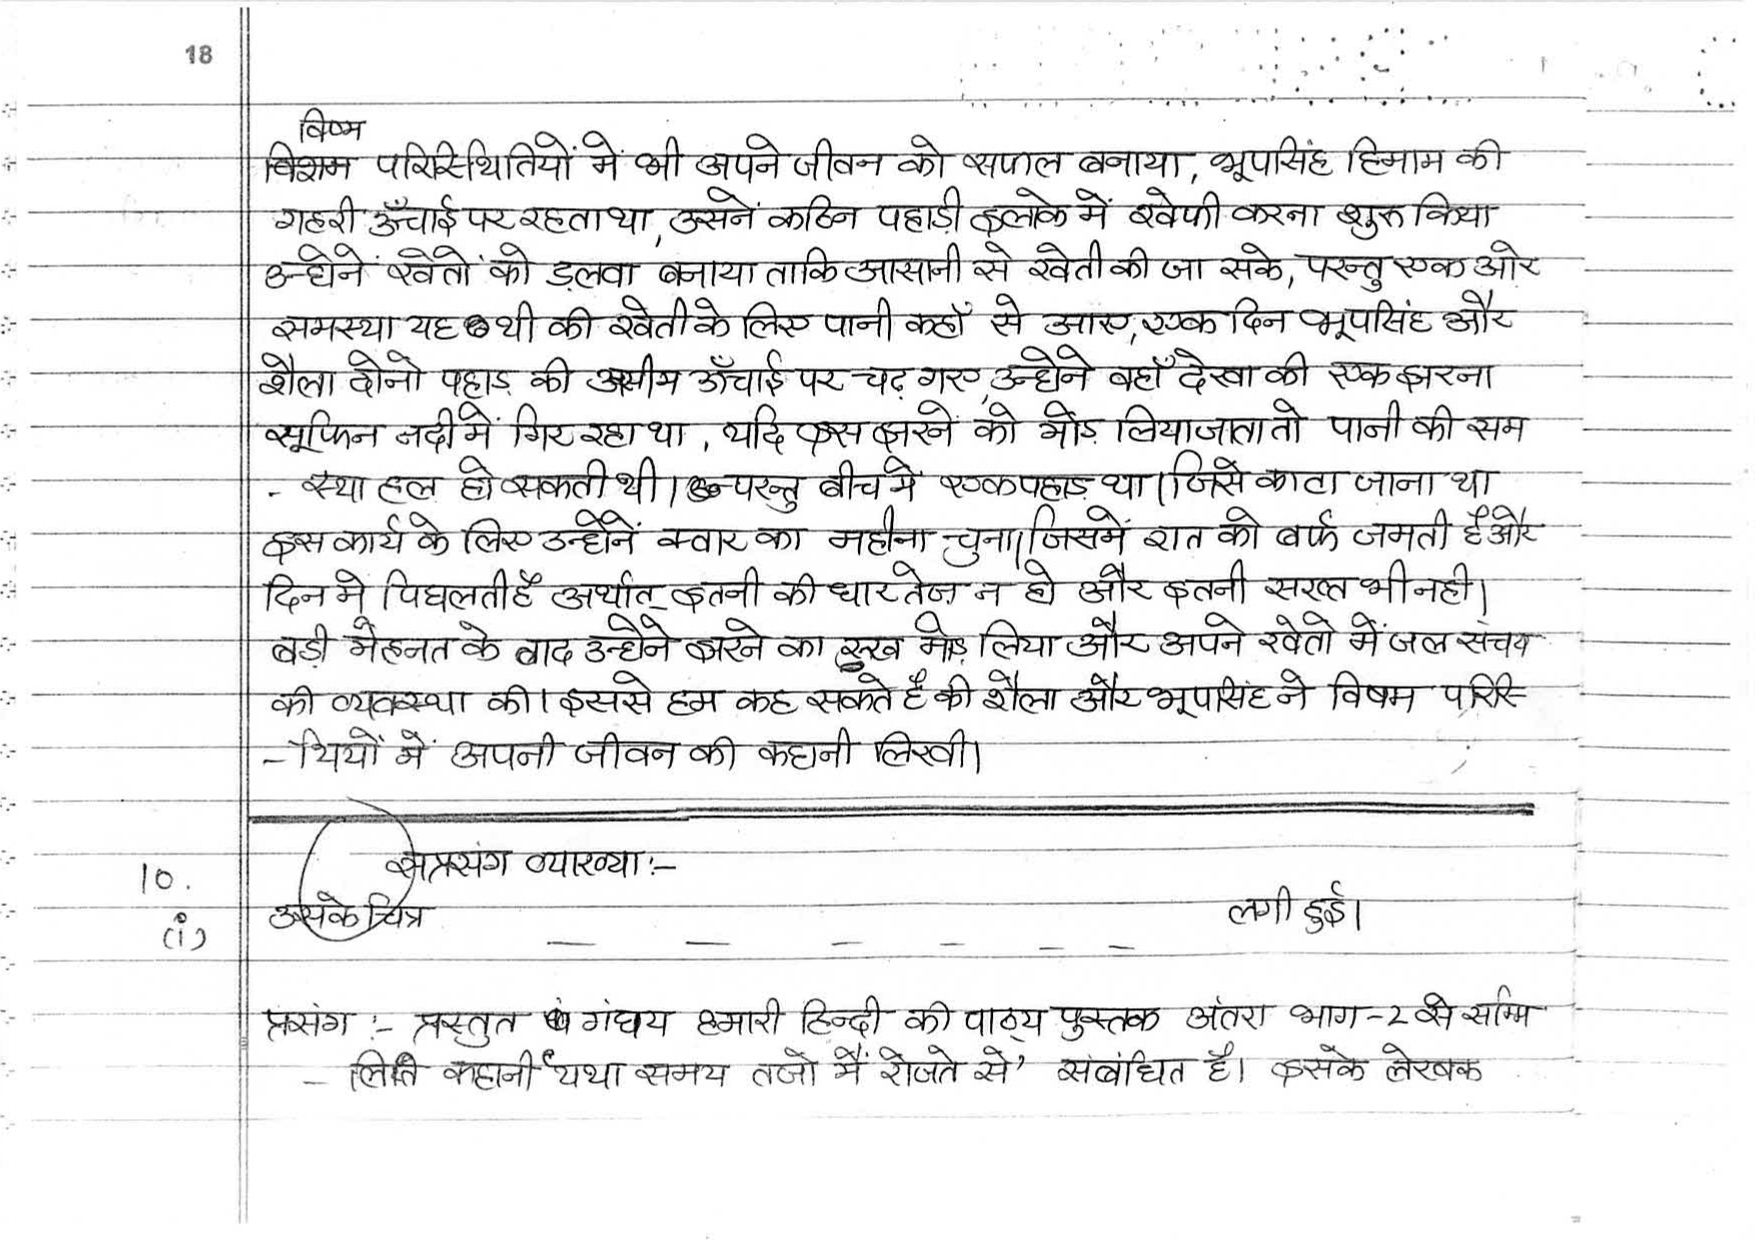 18
विष्म
विशम परिस्थितियों में भी अपने जीवन को सफल बनाया, भूपसिंह हिमाम की
गहरी ऊँचाई पर रहता था, उसनें कठिन पहाड़ी इलाके में खेफी करना शुरु किया
उन्होनें खेतों को ड़लवा बनाया ताकि आसानी से खेती की जा सके, परन्तु एक ओर
समस्या यह थी की खेती के लिए पानी कहाँ से आए, एक दिन भूपसिंह और
शैला दोनो पहाड़ की असीम ऊँचाई पर चढ़ गए, उन्होने वहाँ देखा की एक झरना
सूफिन नदी में गिर रहा था, यदि इस झरने को मोड़ लिया जाता तो पानी की सम
- स्या हल हो सकती थी। परन्तु बीच में एक पहाड़ था। जिसे काटा जाना था
इस कार्य के लिए उन्होनें क्वार का महीना चुना। जिसमें रात को बर्फ जमती है और
दिन मे पिघलती है अर्थात् इतनी की धार तेज न हो और इतनी सख्त भी नही।
बड़ी मेहनत के बाद उन्होने झरने का रुख मोड़ लिया और अपने खेतो में जल संचय
की व्यवस्था की। इससे हम कह सकते है की शैला और भूपसिंह ने विषम परिस्
- थियों में अपनी जीवन की कहानी लिखी।
10. सप्रसंग व्याख्या :-
(i) उसके चित्र — — — — — — लगी हुई।
प्रसंग :- प्रस्तुत गंद्यय हमारी हिन्दी की पाठ्य पुस्तक अंतरा भाग-2 से सम्मि
- लिति कहानी "यथा समय तजो मैं रोजते से' संबंधित है। इसके लेखक